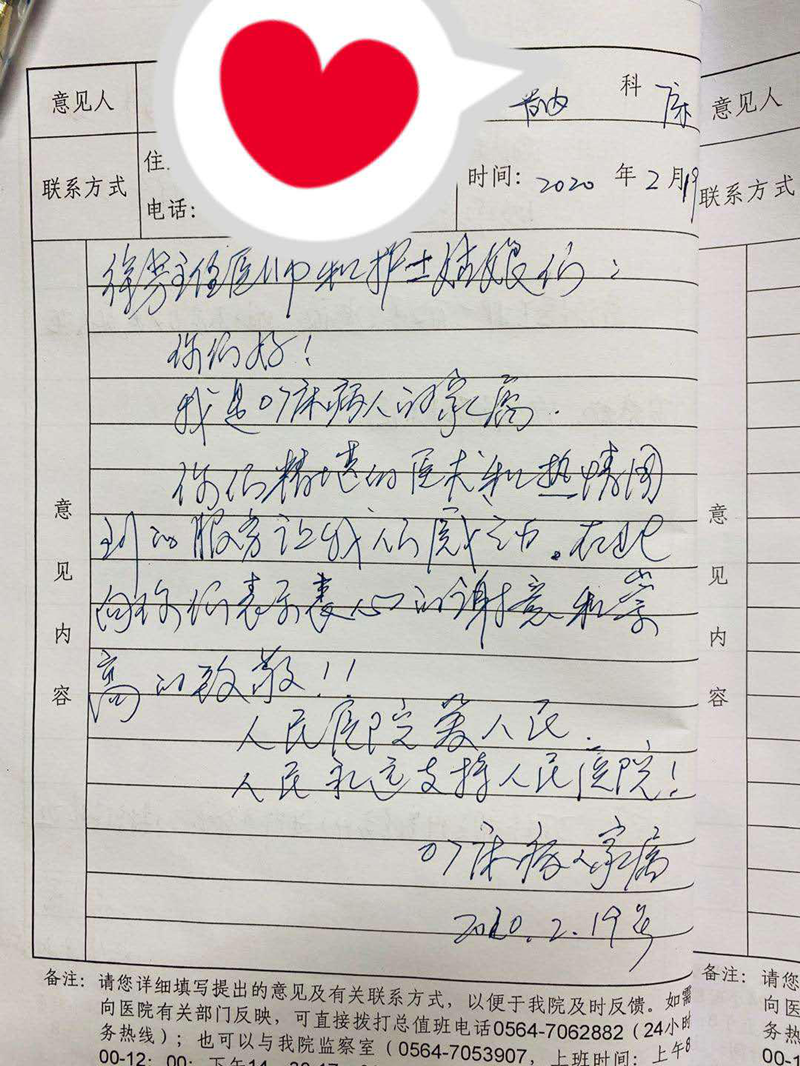 意见人
科 床
意见人
联系方式
住
电话：
时间：2020 年 2 月 19
联系方式
徐 主任医师和护士姑娘们：
你们好！
我是07床病人的家属.
你们精湛的医术和热情周
到的服务让我们感动。在此
向你们表示衷心的谢意和崇
高的致敬!!
人民医院 人民.
人民永远支持人民医院！
07床病人家属
2020.2.19号
意见内容
意见内容
备注：请您详细填写提出的意见及有关联系方式，以便于我院及时反馈。如需
向医院有关部门反映，可直接拨打总值班电话0564-7062882（24小时
务热线）；也可以与我院监察室（0564-7053907，上班时间：上午8
00-12：00；下午14
备注：请您
向医
务热
00-1